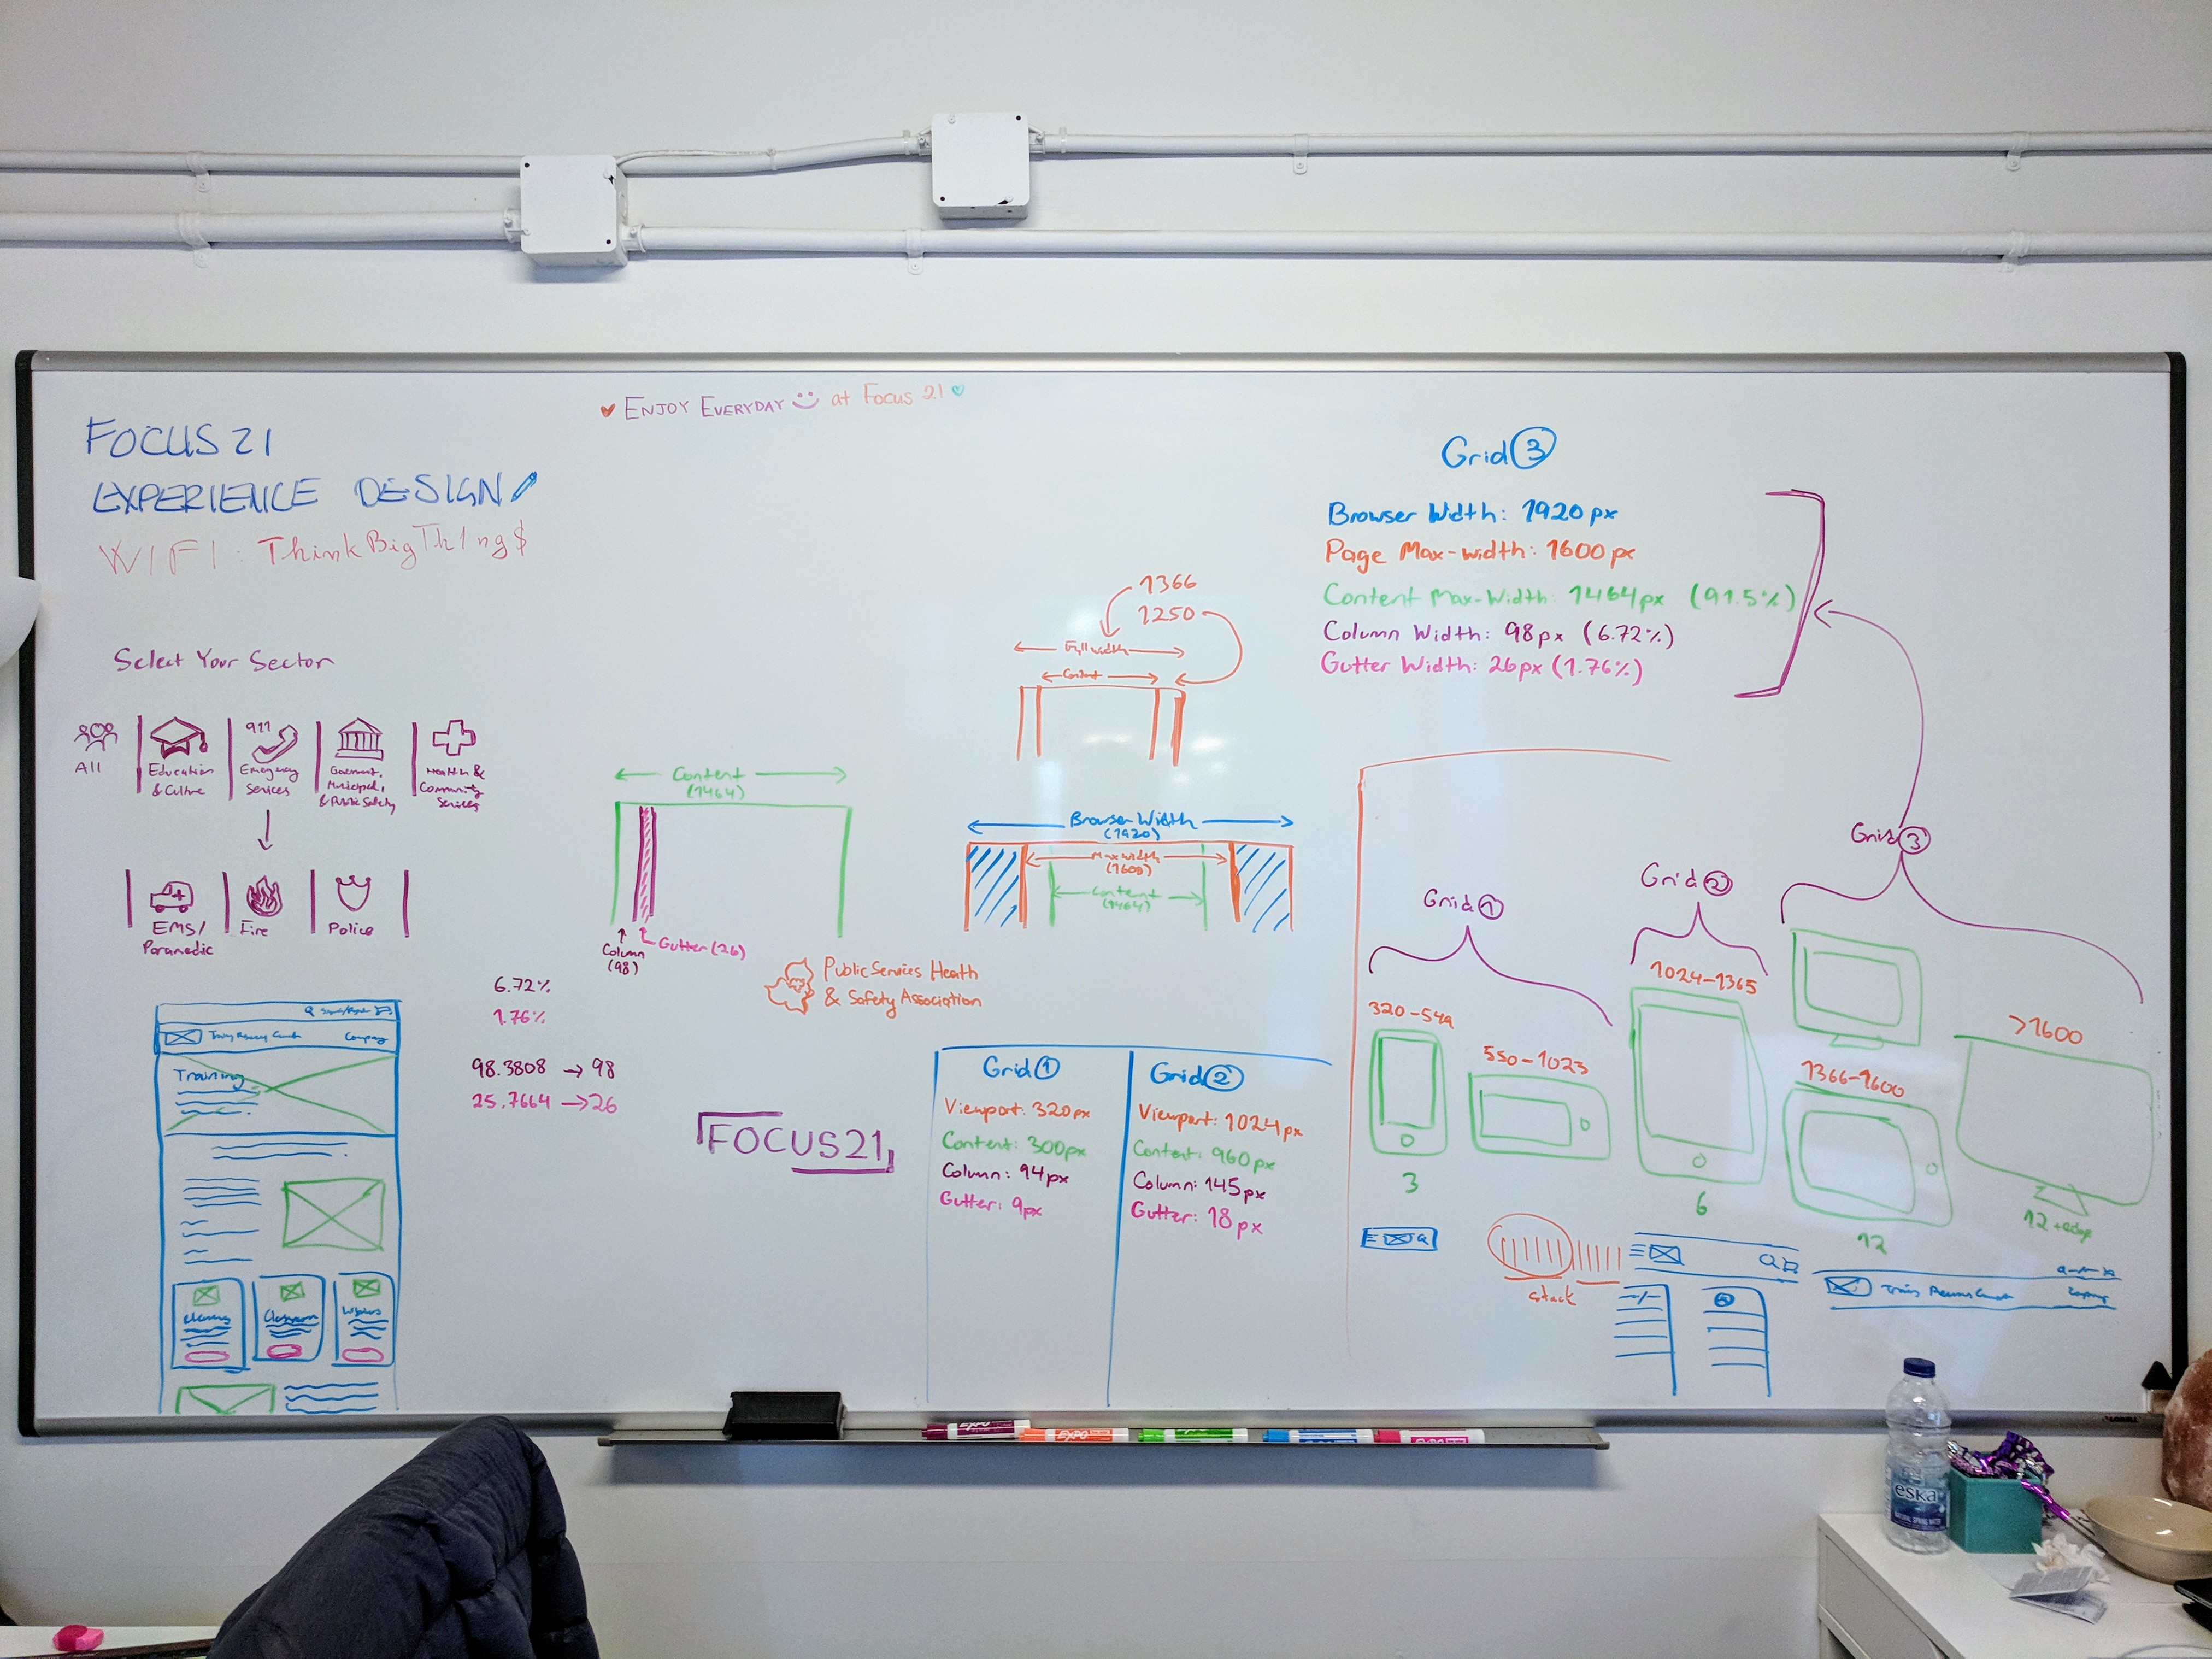 ENJOY EVERYDAY at Focus 21
FOCUS 21
EXPERIENCE DESIGN
WIFI: ThinkBigTh1ng$
Select Your Sector
All
Education
& Culture
911
Emergency
Services
Government,
Municipal,
& Public Safety
Health &
Community
Services
EMS/
Paramedic
Fire
Police
6.72%
1.76%
98.3808 → 98
25.7664 → 26
Training
Company
Classroom
Content
(1464)
Column
(98)
Gutter (26)
1366
1250
Full width
Content
Browser Width
(1920)
Max width
(1600)
Content
(1464)
Public Services Health
& Safety Association
FOCUS21
Grid 1
Viewport: 320px
Content: 300px
Column: 94px
Gutter: 9px
Grid 2
Viewport: 1024px
Content: 960px
Column: 145px
Gutter: 18px
Grid 3
Browser Width: 1920px
Page Max-width: 1600px
Content Max-Width: 1464px (91.5%)
Column Width: 98px (6.72%)
Gutter Width: 26px (1.76%)
Grid 1
320-549
3
550-1023
Grid 2
1024-1365
6
Grid 3
1366-1600
12
>1600
12 + edge
stack
EXPO
EXPO
eska